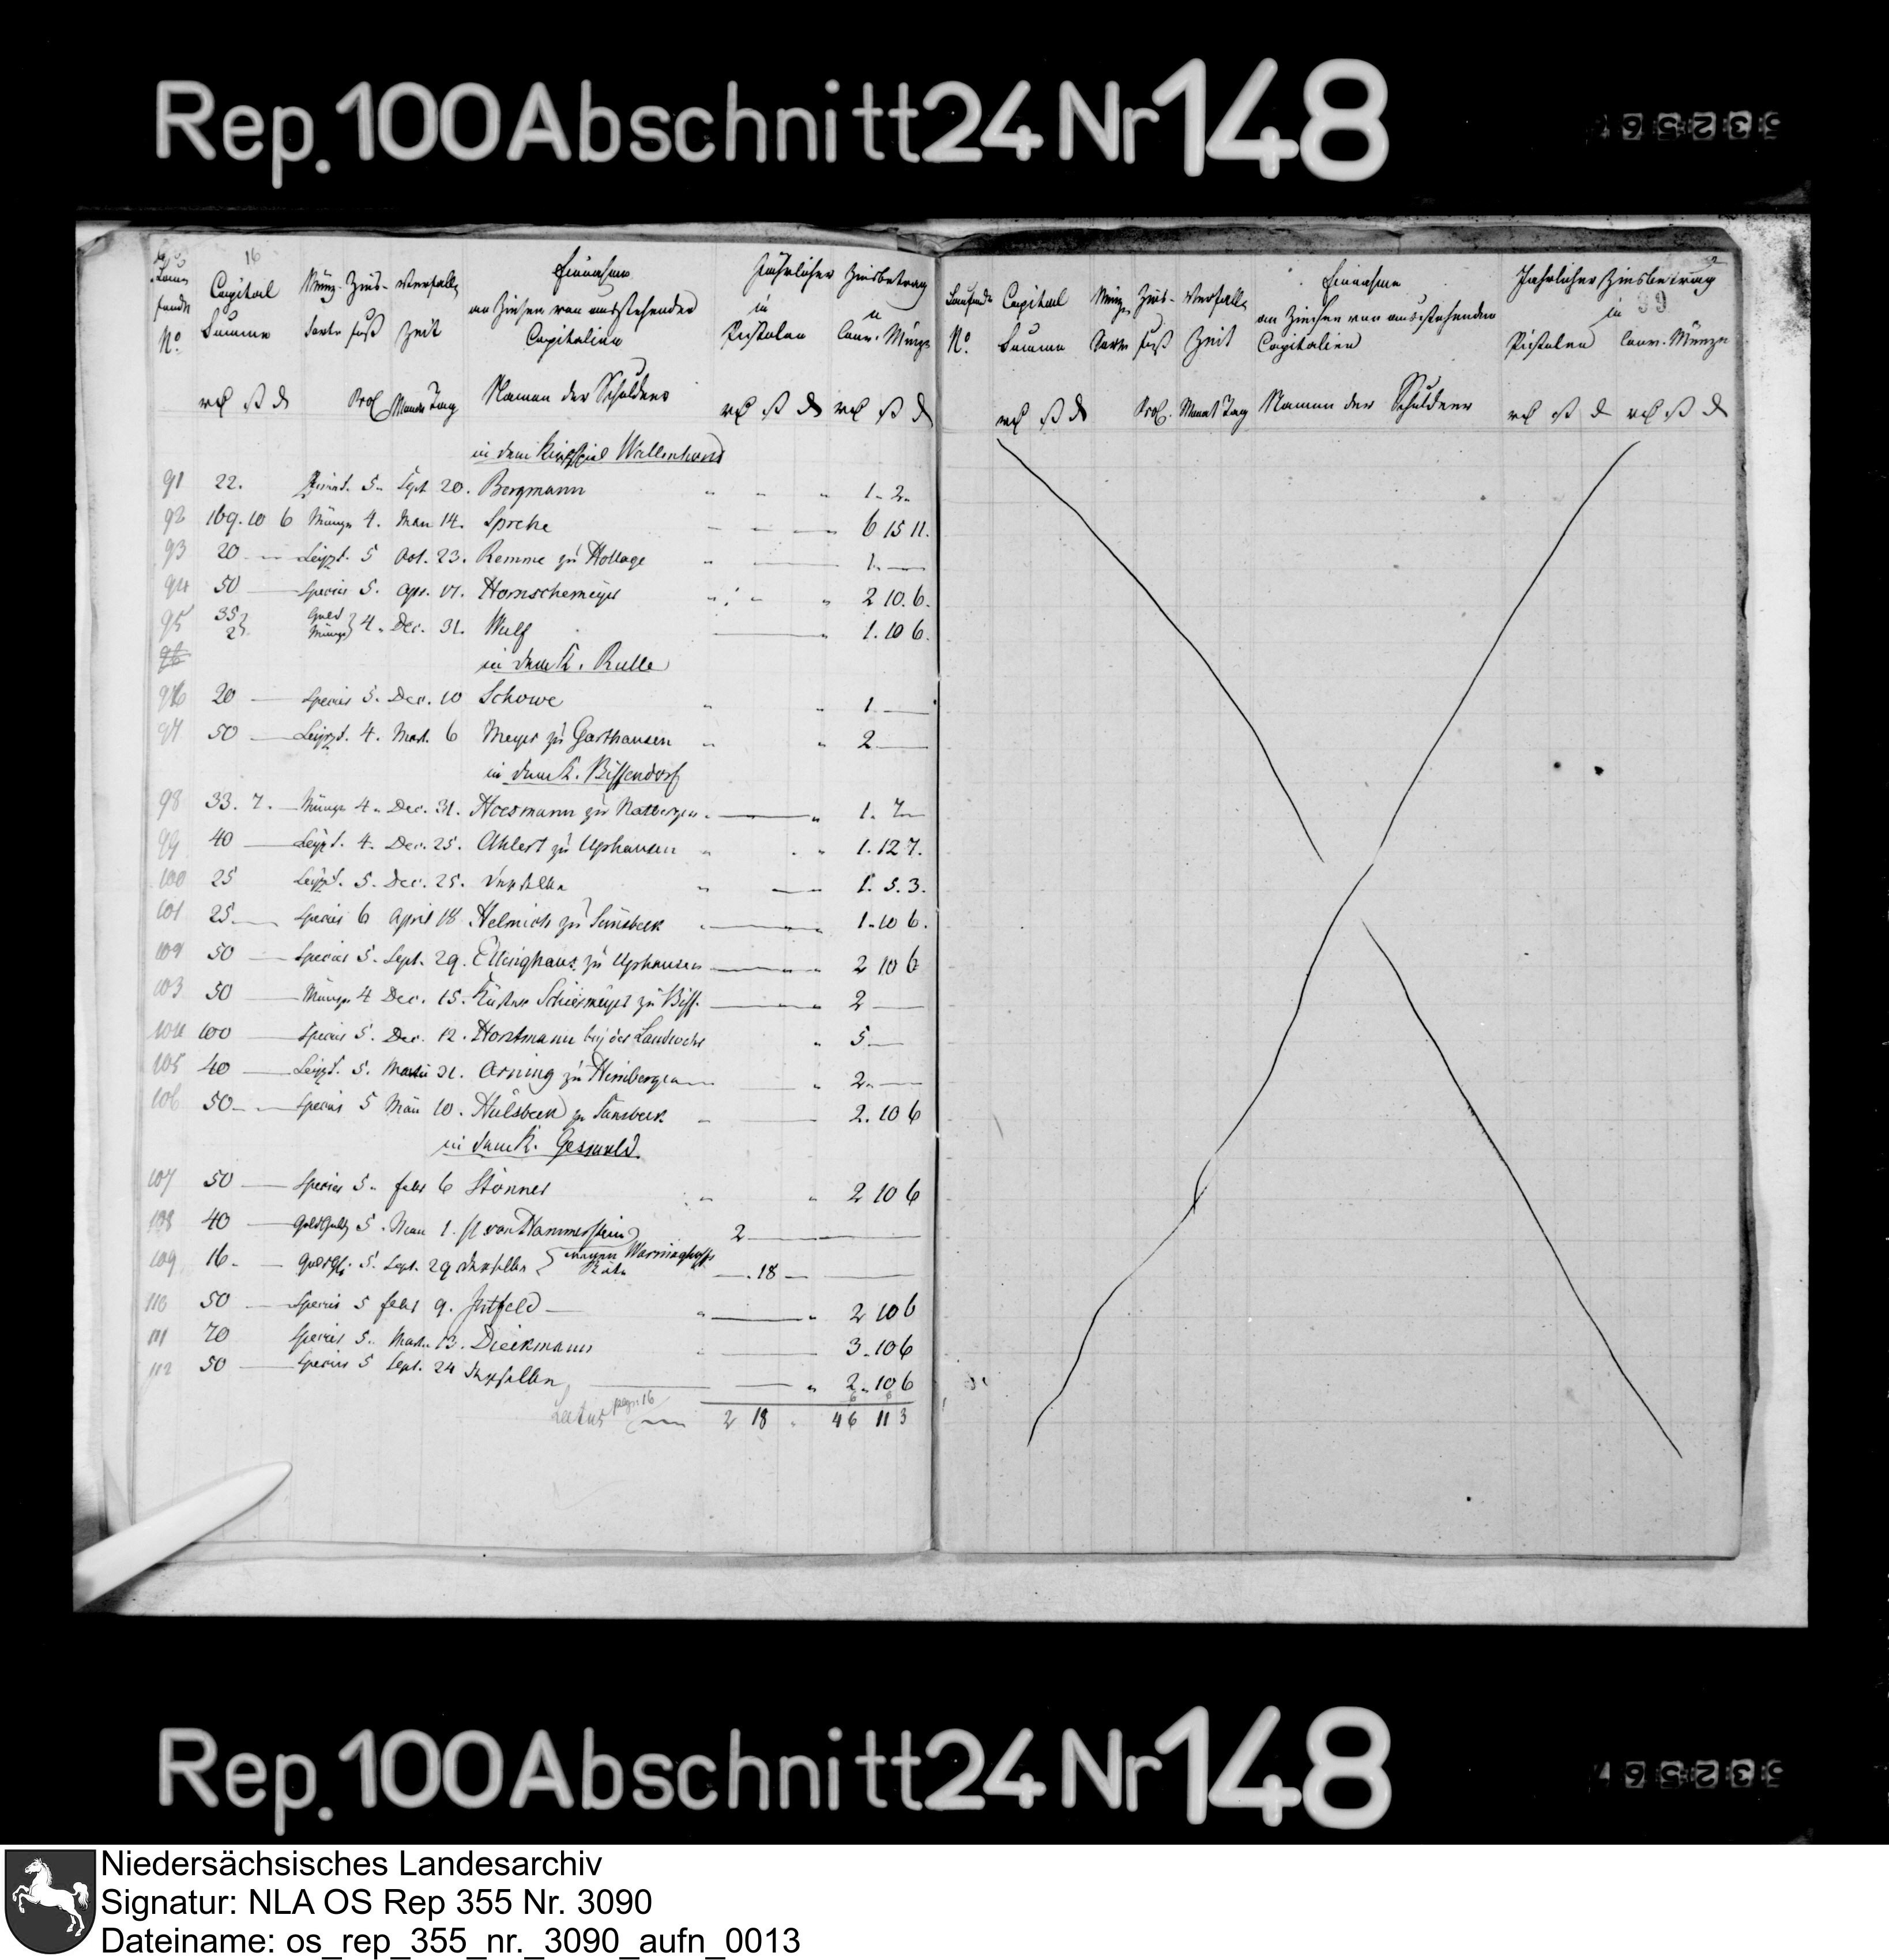 Rep. 100 Abschnitt 24 Nr 148
16
Laufende Capital Münz- Zins- Verfall- Einnahme Jährlicher Zinsbetrag
an Zinsen von ausstehenden in
No. Summe Sorte fuß Zeit Capitalien Pistolen Conv. Münze
Proc Monat Tag Namen der Schuldner
in dem Kirchspiel Wallenhorst
91 22. 5. Sept 20. Bergmann 1. 2.
92 169. 10 6 Münze 4. 14. Sprehe 6 15 11.
93 20 5 Oct. 23. Remme zu Hollage 1.
94 50 Species 5. Apr. 17. Hornschemeyer 2 10. 6.
95 35 Gold
2 Münze 4. Dec. 31. Wulf 1. 10 6.
in dem K. Rulle
96 20 Species 5. Dec. 10 Schowe 1
97 50 4. 6 Meyer zu Garthausen 2
in dem K. Bissendorf
98 33. 7. Münze 4. Dec. 31. Hoesmann zu Natbergen 1. 7
99 40 4. Dec. 25. Ahlert zu Uphausen 1. 12 7.
100 25 5. Dec. 25. derselbe 1. 5. 3.
101 25 Species 6 April 18 Helmich zu Sünsbeck 1. 10 6.
102 50 Species 5. Sept. 29. Ellinghaus zu Uphausen 2 10 6
103 50 Münze 4 Dec. 15. Küster Schiermeyer zu Biss. 2
104 100 Species 5. Dec. 12. Horstmann bey der Landwehr 5
105 40 5. Arning zu Himbergen 2.
106 50 Species 5 10. Hülsbeck zu Sünsbeck 2. 10 6
in dem K. Gesmold.
107 50 Species 5. febr 6 Stönner 2 10 6
108 40 Goldguld 5. 1. von Hammerstein 2
109 16. 5. Sept. 29 derselbe wegen Warninghoffs 18
110 50 Species 5 febr 9. 2 10 6
111 70 Species 5. 13. Dieckmann 3. 10 6
112 50 Species 5 Sept. 24 derselbe 2. 10 6
Latus pagin 16 2 18 46 11 3
99
Laufende Capital Münz Zins- Verfall- Einnahme Jährlicher Zinsbetrag
an Zinsen von ausstehenden in
No. Summe Sorte fuß Zeit Capitalien Pistolen Conv. Münze
Proc. Monat Tag Namen der Schuldner
Rep. 100 Abschnitt 24 Nr 148
Niedersächsisches Landesarchiv
Signatur: NLA OS Rep 355 Nr. 3090
Dateiname: os_rep_355_nr._3090_aufn_0013